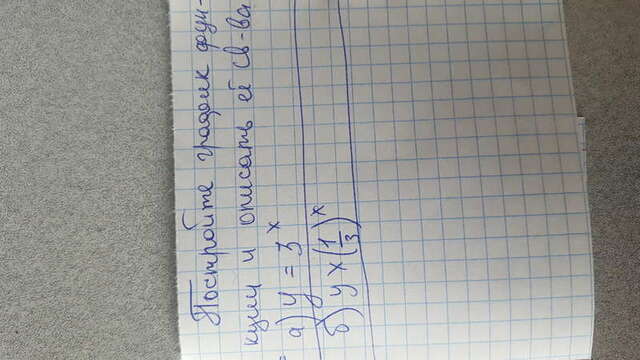 Постройте график фун-
кции и описать её св-ва
а) y = 3^x
б) y x (1/3)^x